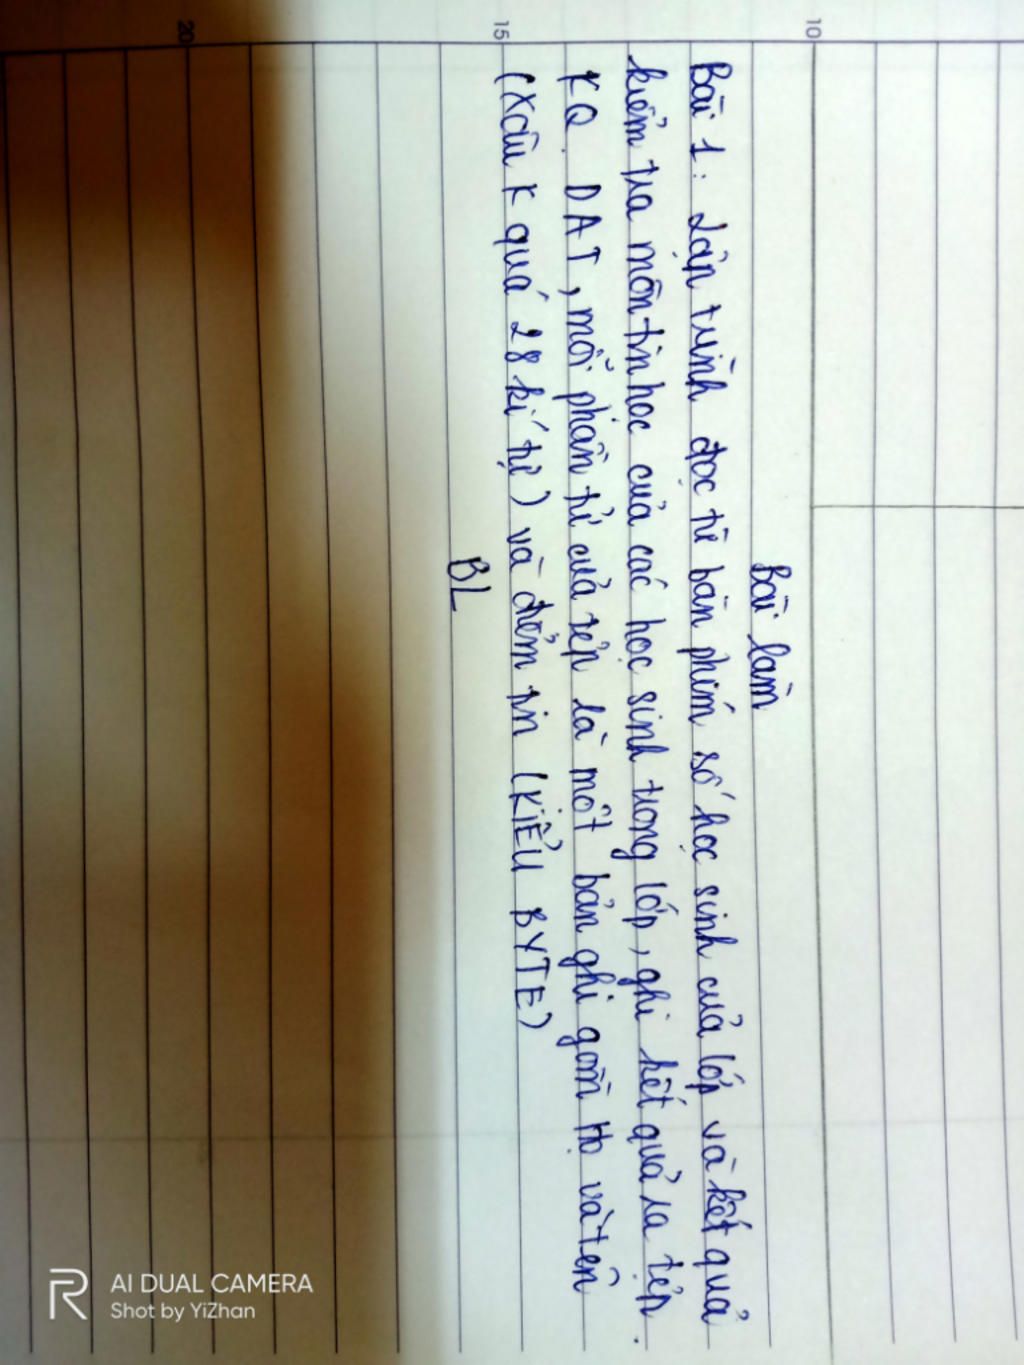 Bài làm
Bài 1: Lập trình đọc từ bàn phím số học sinh của lớp và kết quả
kiểm tra môn tin học của các học sinh trong lớp, ghi kết quả ra tệp.
KQ. DAT, mỗi phần tử của tệp là một bản ghi gồm Họ và tên
(Xâu K quá 28 kí tự) và điểm tin (KIỂU BYTE)
BL
10
15
20
AI DUAL CAMERA
Shot by YiZhan